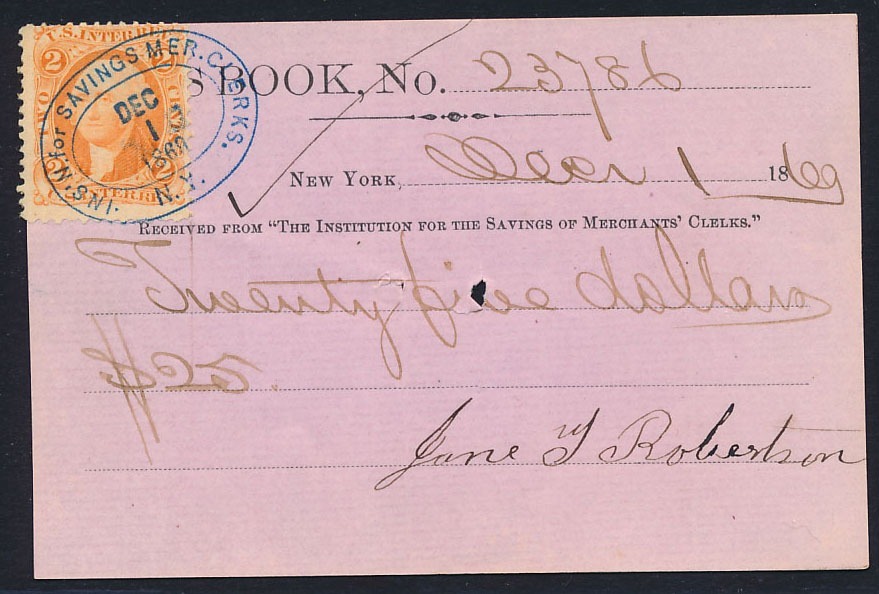 U.S. INTER. REV.
2 2
TWO CE
2 2
INTER. RE
INS'N. for SAVINGS MER. CLERKS.
DEC
1
1869
N.Y.
S BOOK, No. 23786
NEW YORK, Decr 1 1869
RECEIVED FROM "THE INSTITUTION FOR THE SAVINGS OF MERCHANTS' CLELKS."
Twenty five dollars
$25.
Jane Y Robertson